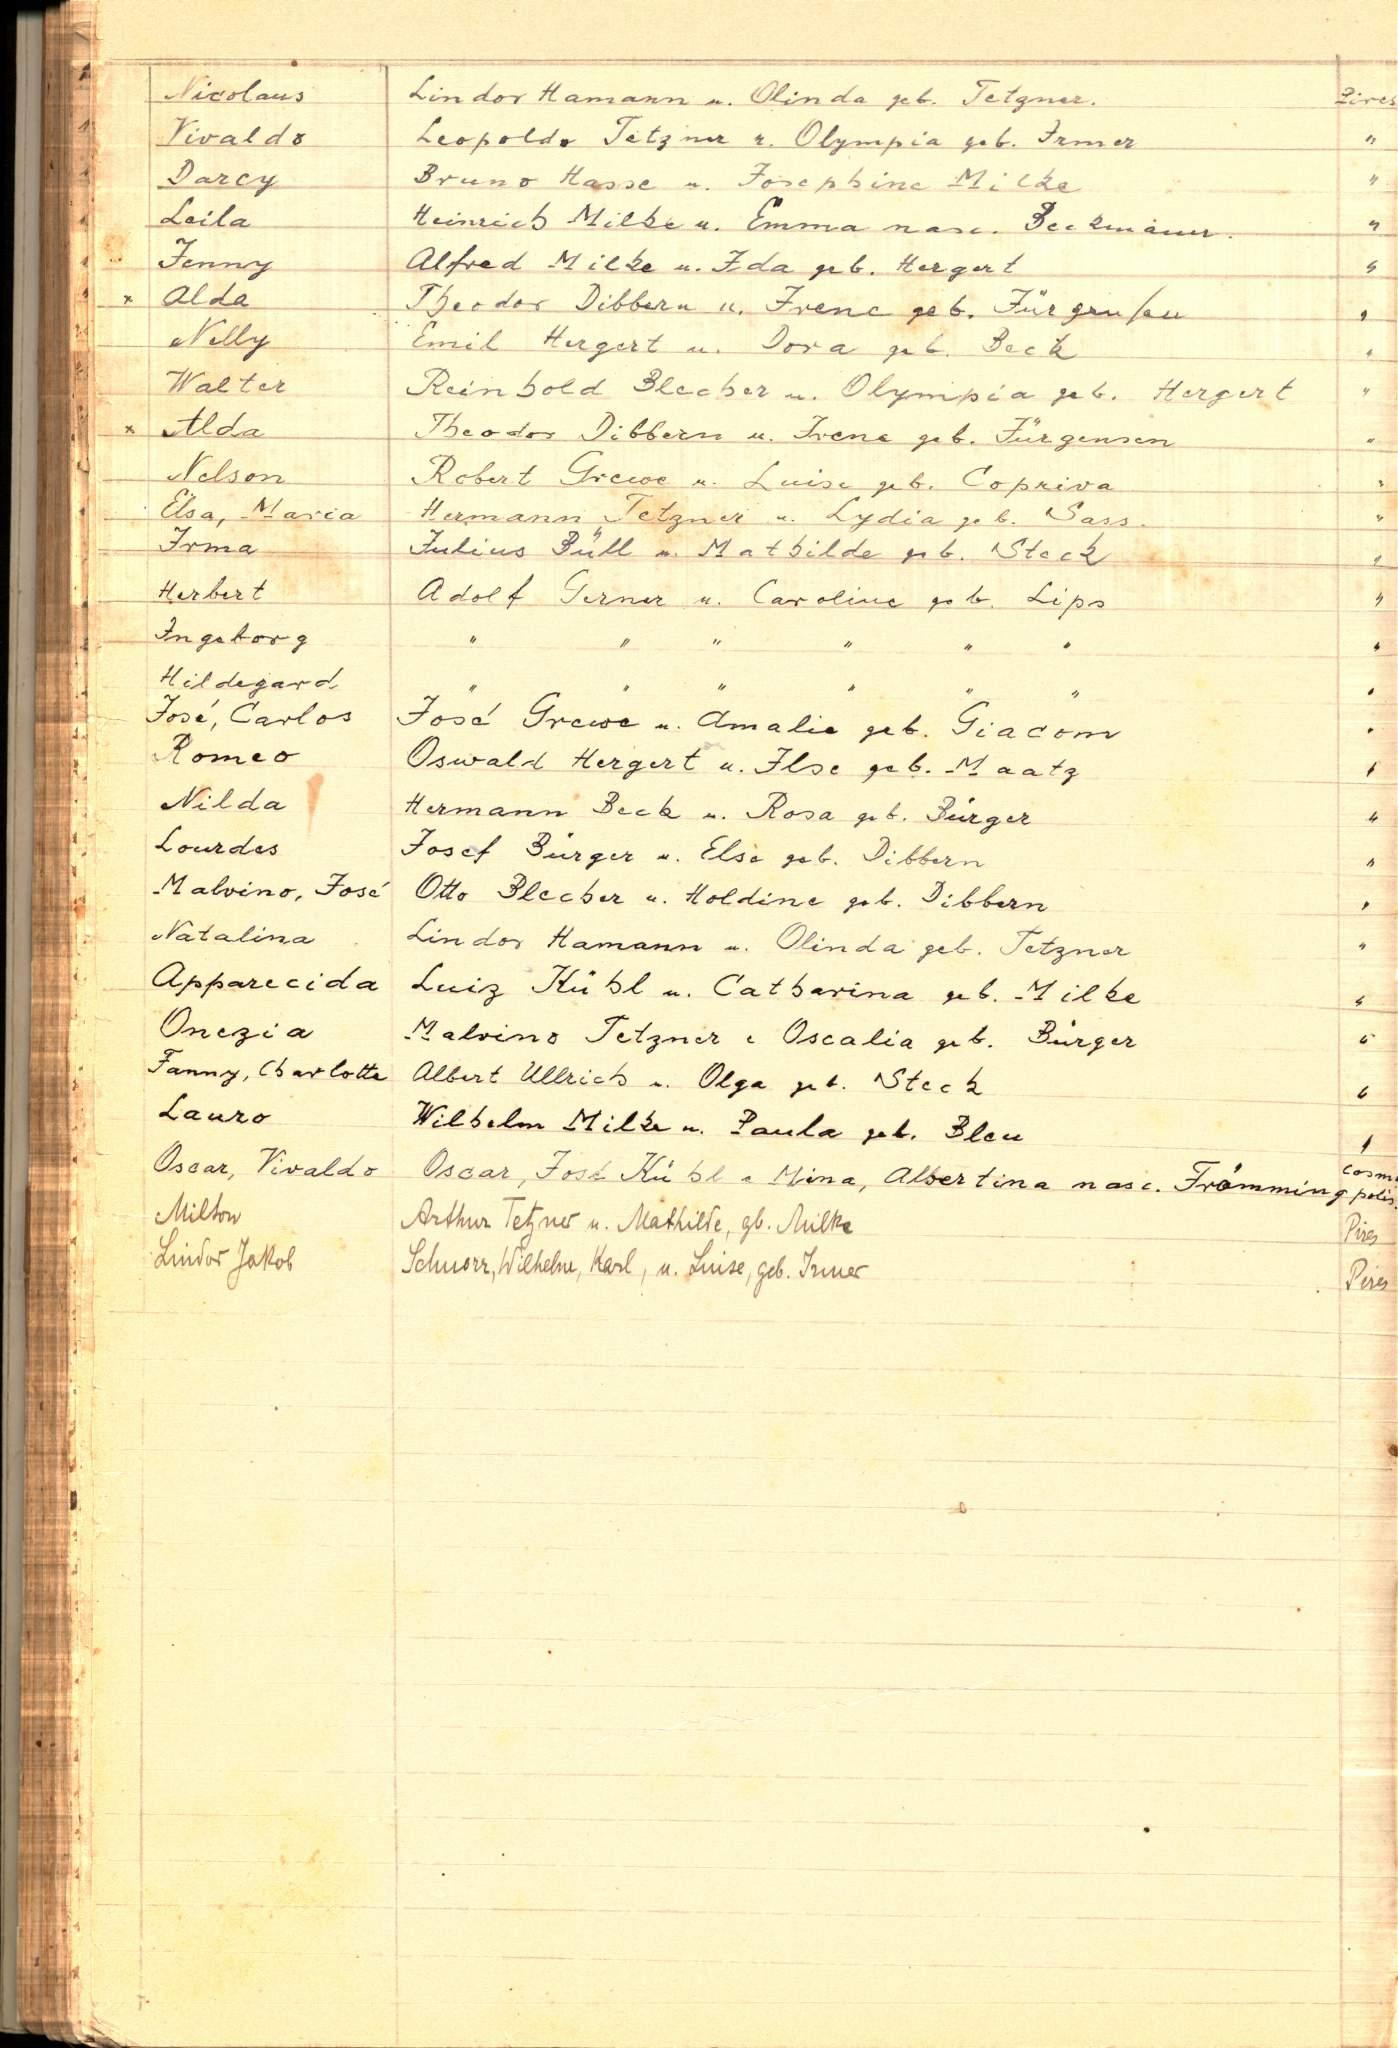 Nicolaus Lindor Hamann u. Olinda geb. Tetzner. Pires
Vivaldo Leopoldo Tetzner u. Olympia geb. Irmer "
Darcy Bruno Hasse u. Josephine Milke "
Leila Heinrich Milke u. Emma nasc. Beckmann. "
Jenny Alfred Milke u. Ida geb. Hergert "
x Alda Theodor Dibbern u. Irene geb. "
Nelly Emil Hergert u. Dora geb. Beck "
Walter Reinhold Blecher u. Olympia geb. Hergert "
x Alda Theodor Dibbern u. Irene geb. Jürgensen "
Nelson Robert Grewe u. Luise geb. Copriva "
Elsa, Maria Hermann Tetzner u. Lydia geb. Sass. "
Irma Julius Büll u. Mathilde geb. Steck "
Herbert Adolf Gerner u. Caroline geb. Lips "
Ingeborg " " " " " " "
Hildegard " " " " " " "
José, Carlos José Grewe u. Amalie geb. Giacom "
Romeo Oswald Hergert u. Ilse geb. Maatz "
Nilda Hermann Beck u. Rosa geb. Bürger "
Lourdes Josef Bürger u. Else geb. Dibbern "
Malvino, José Otto Blecher u. Holdine geb. Dibbern "
Natalina Lindor Hamann u. Olinda geb. Tetzner "
Apparecida Luiz Kühl u. Catharina geb. Milke "
Onezia Malvino Tetzner e Oscalia geb. Bürger "
Fanny, Charlotte Albert Ullrich u. Olga geb. Steck "
Lauro Wilhelm Milke u. Paula geb. Bleu "
Oscar, Vivaldo Oscar, José Kühl e Mina, Albertina nasc. Frömming Cosmopolis.
Milton Arthur Tetzner u. Mathilde, gb. Milke Pires
Lindor Jakob Schnorr, Wilhelm, Karl, u. Luise, geb. Irmer Pires